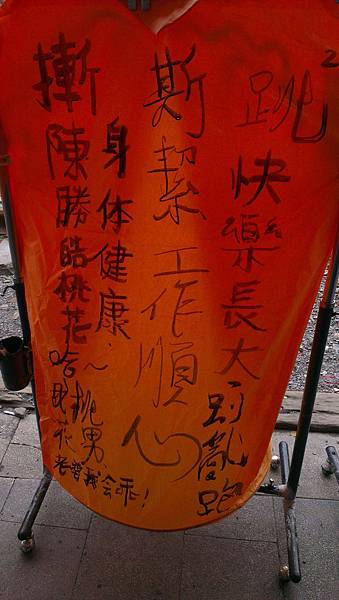 跳2快樂長大
別亂跑
斯絜工作順心
身体健康~
摲陳勝皓桃花
桃男
哈
花
老爸我會乖!